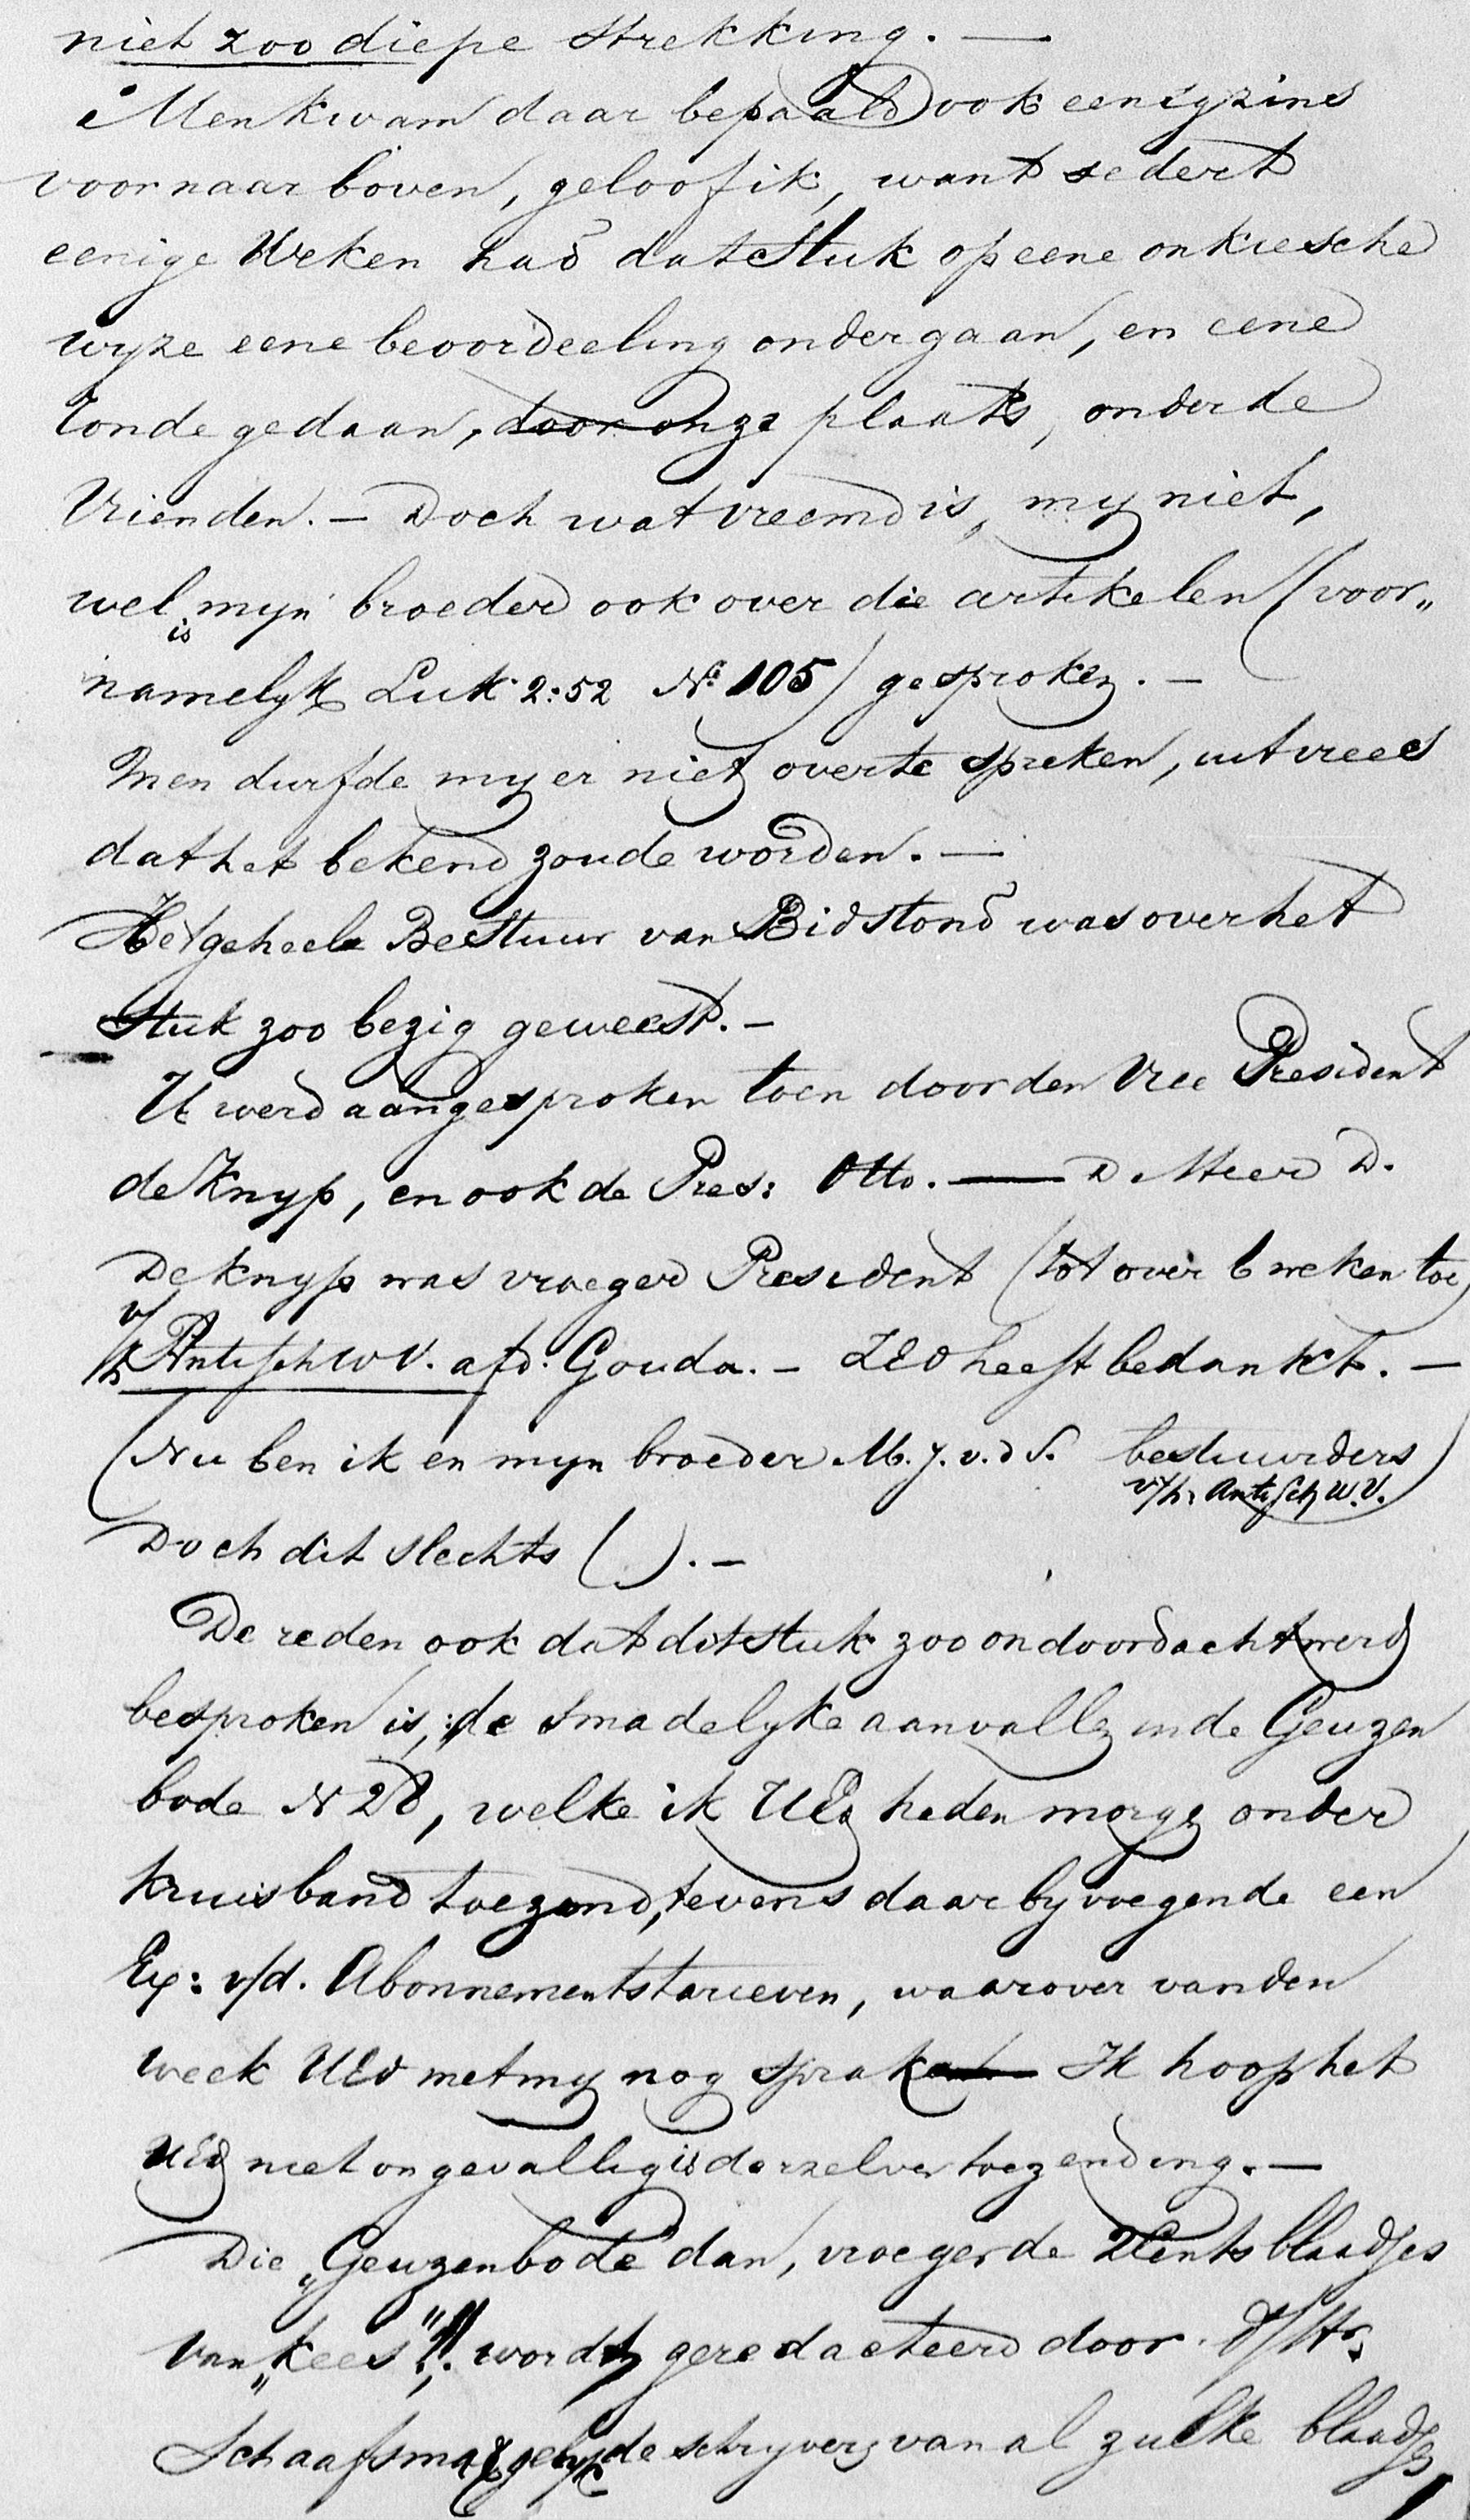 niet zoo diepe strekking. —
Men kwam daar bepaald ook eenigzins
voor naar boven, geloof ik, want sedert
eenige weken had dat stuk op eene onkiesche
wyze eene beoordeeling ondergaan, en eene
ronde gedaan, door onze plaats, onder de
Vrienden. — Doch wat vreemd is, my niet,
wel is mijn broeder ook over die artikelen (voor„
namelyk Luk 2:52 No 105) gesproken. —
Men durfde my er niet over te spreken, uit vrees
dat het bekend zoude worden. —
Het geheele Bestuur van Bidstond was over het
Stuk zoo bezig geweest. —
Ik werd aangesproken toen door den Vice President
de Knyp, en ook de Pres: Otto. — D Meer D.
De Knyp was vroeger President (tot over 6 weken toe)
v/h Anti sch W V. afd: Gouda. — ZEd heeft bedankt. —
(Nu ben ik en myn broeder M. J. v. d S. bestuurders
v/h. Anti Sch W.V.)
Doch dit slechts ( ). —
De reden ook dat dit stuk zoo ondoordacht werd
besproken is,: de smadelyke aanvallen in de Geuzen
bode N 28, welke ik UEd heden morgen onder
kruisband toezond, tevens daar by voegende een
Ex: v/d. Abonnementstarieven, waarover van den
week UEd met my nog sprak Ik hoop het
UEd niet ongevallig is derzelver toezending. —
Die „Geuzenbode" dan, vroeger de 2 Cents blaadjes
van „Kees"!!. wordt geredacteerd door. d/Hr.
Schaafsma, de schryvers van al zulke blaadjes